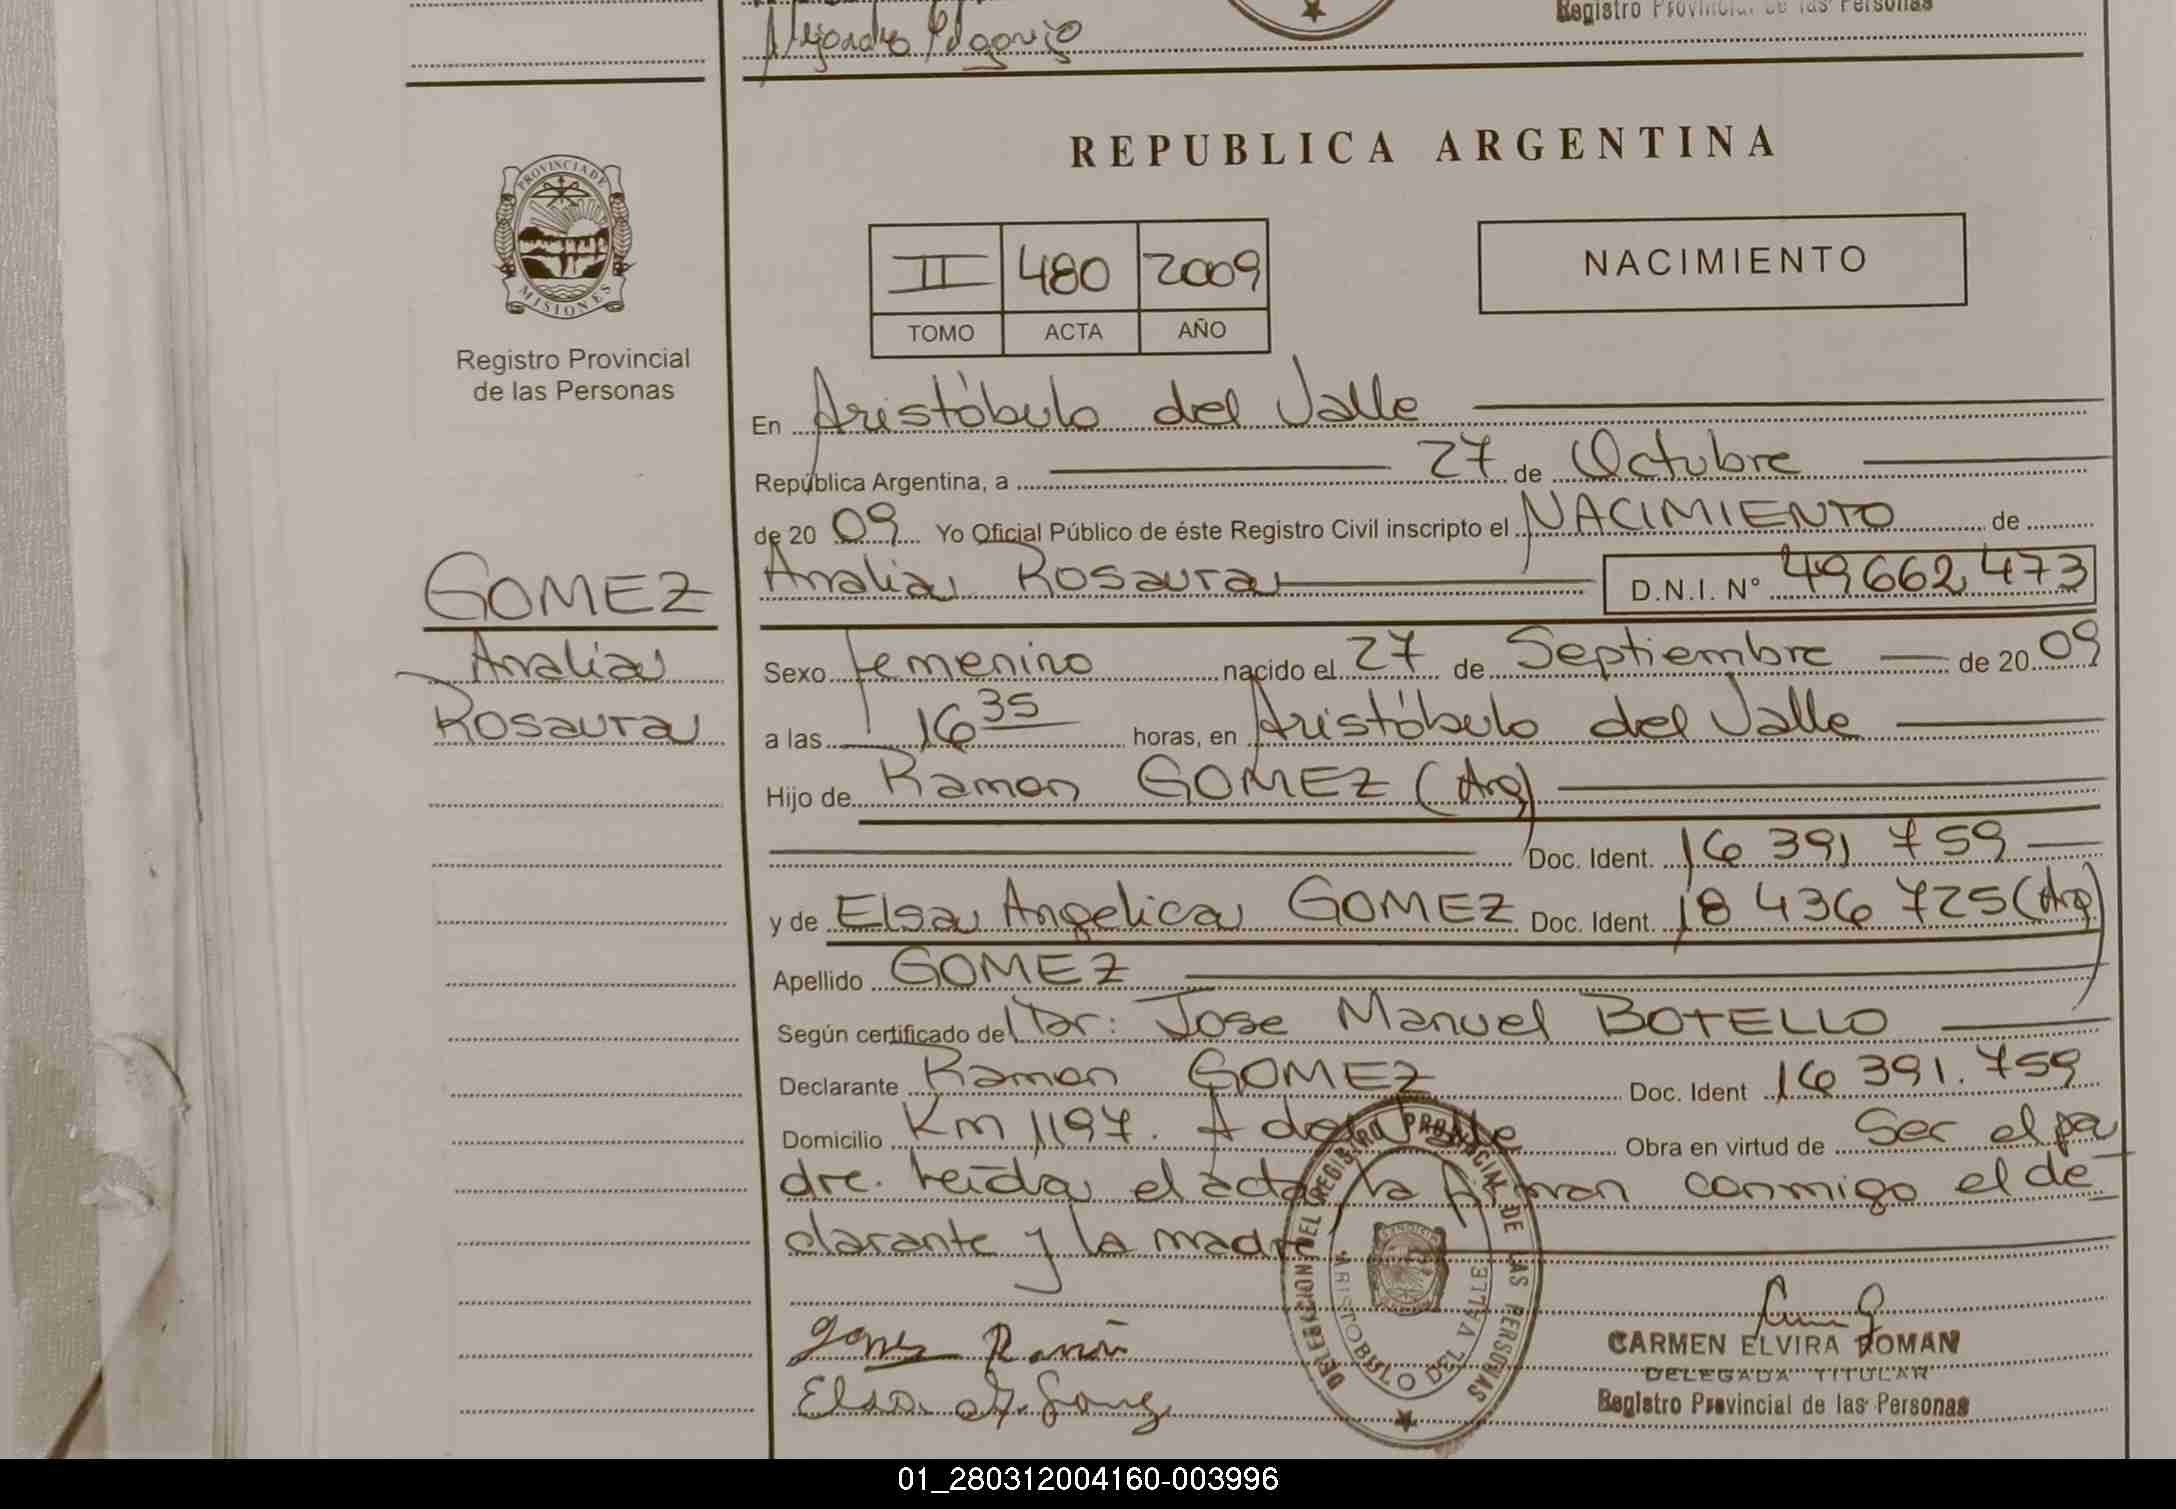 Registro Provincial de las Personas
REPUBLICA ARGENTINA
PROVINCIA DE
MISIONES
Registro Provincial
de las Personas
II 480 2009
TOMO ACTA AÑO
NACIMIENTO
En Aristóbulo del Valle
República Argentina, a 27 de Octubre
de 20 09 Yo Oficial Público de éste Registro Civil inscripto el NACIMIENTO de
GOMEZ
Analia
Rosaura
Analia Rosaura D.N.I. N° 49662473
Sexo femenino nacido el 27 de Septiembre de 20 09
a las 16 35 horas, en Aristóbulo del Valle
Hijo de Ramon GOMEZ (Arg)
Doc. Ident. 16 391 759
y de Elsa Angelica GOMEZ Doc. Ident. 18 436 725 (Arg)
Apellido GOMEZ
Según certificado del Dr: Jose Manuel BOTELLO
Declarante Ramon GOMEZ Doc. Ident 16 391.759
Domicilio Km 1197. A del Valle Obra en virtud de Ser el pa
dre. Leída el acta la firman conmigo el de
clarante y la madre
Gomez Ramón
Elsa A. Gomez
DELEGACION DEL REGISTRO PROVINCIAL DE LAS PERSONAS
ARISTOBULO DEL VALLE
CARMEN ELVIRA ROMAN
DELEGADA TITULAR
Registro Provincial de las Personas
01_280312004160-003996